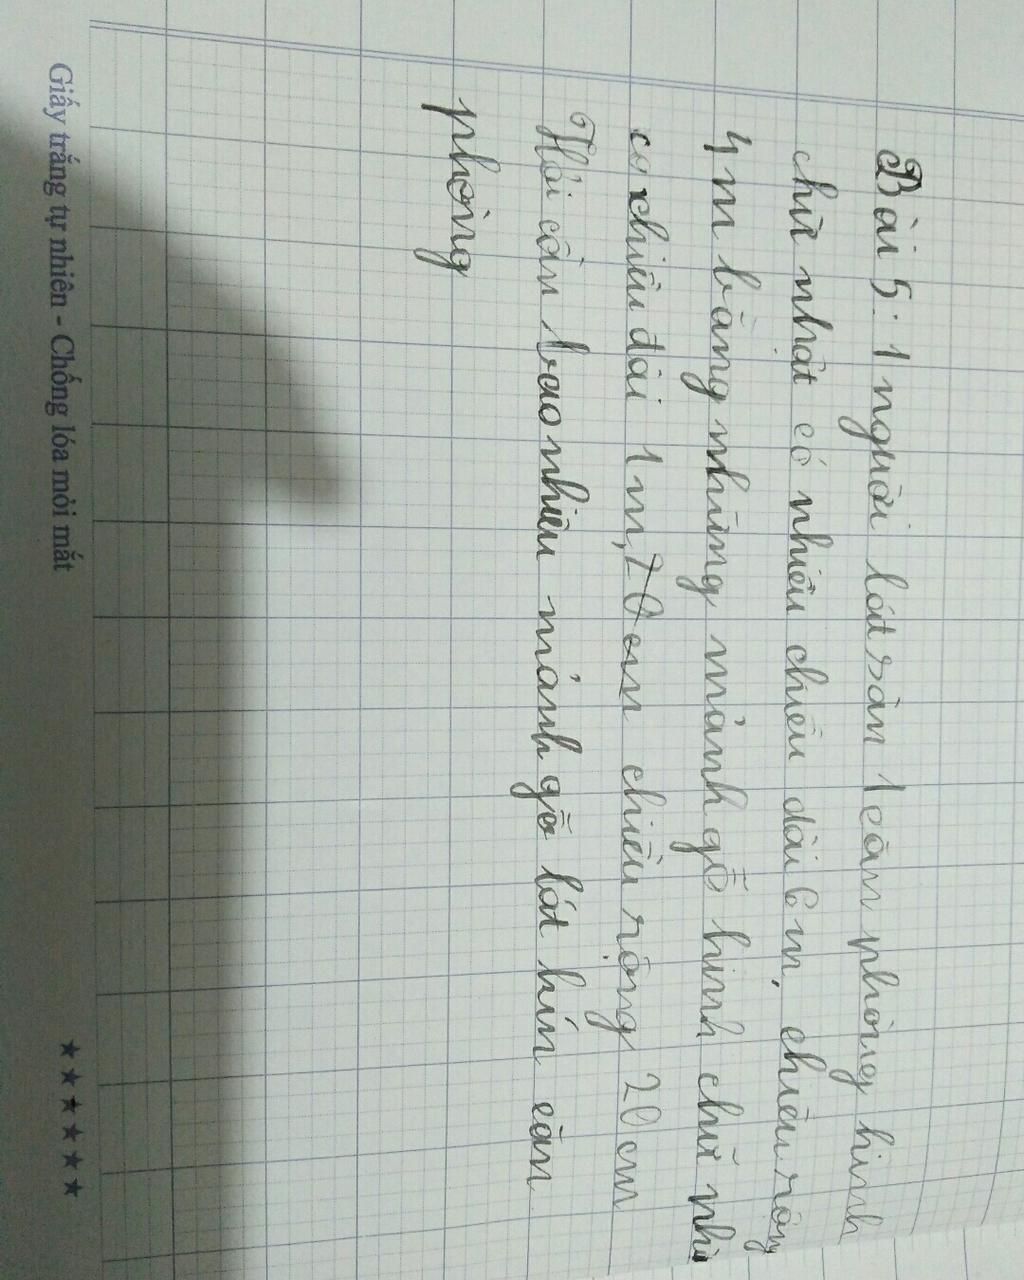 Bài 5: 1 người lót sàn 1 căn phòng hình
chữ nhật có nhiều chiều dài 6m, chiều rộng
4m bằng những mảnh gỗ hình chữ nhì
có chiều dài 1m, 20cm chiều rộng 20cm
Hỏi cần bao nhiêu mảnh gỗ lót kín căn
phòng
Giấy trắng tự nhiên - Chống lóa mỏi mắt
★★★★★★